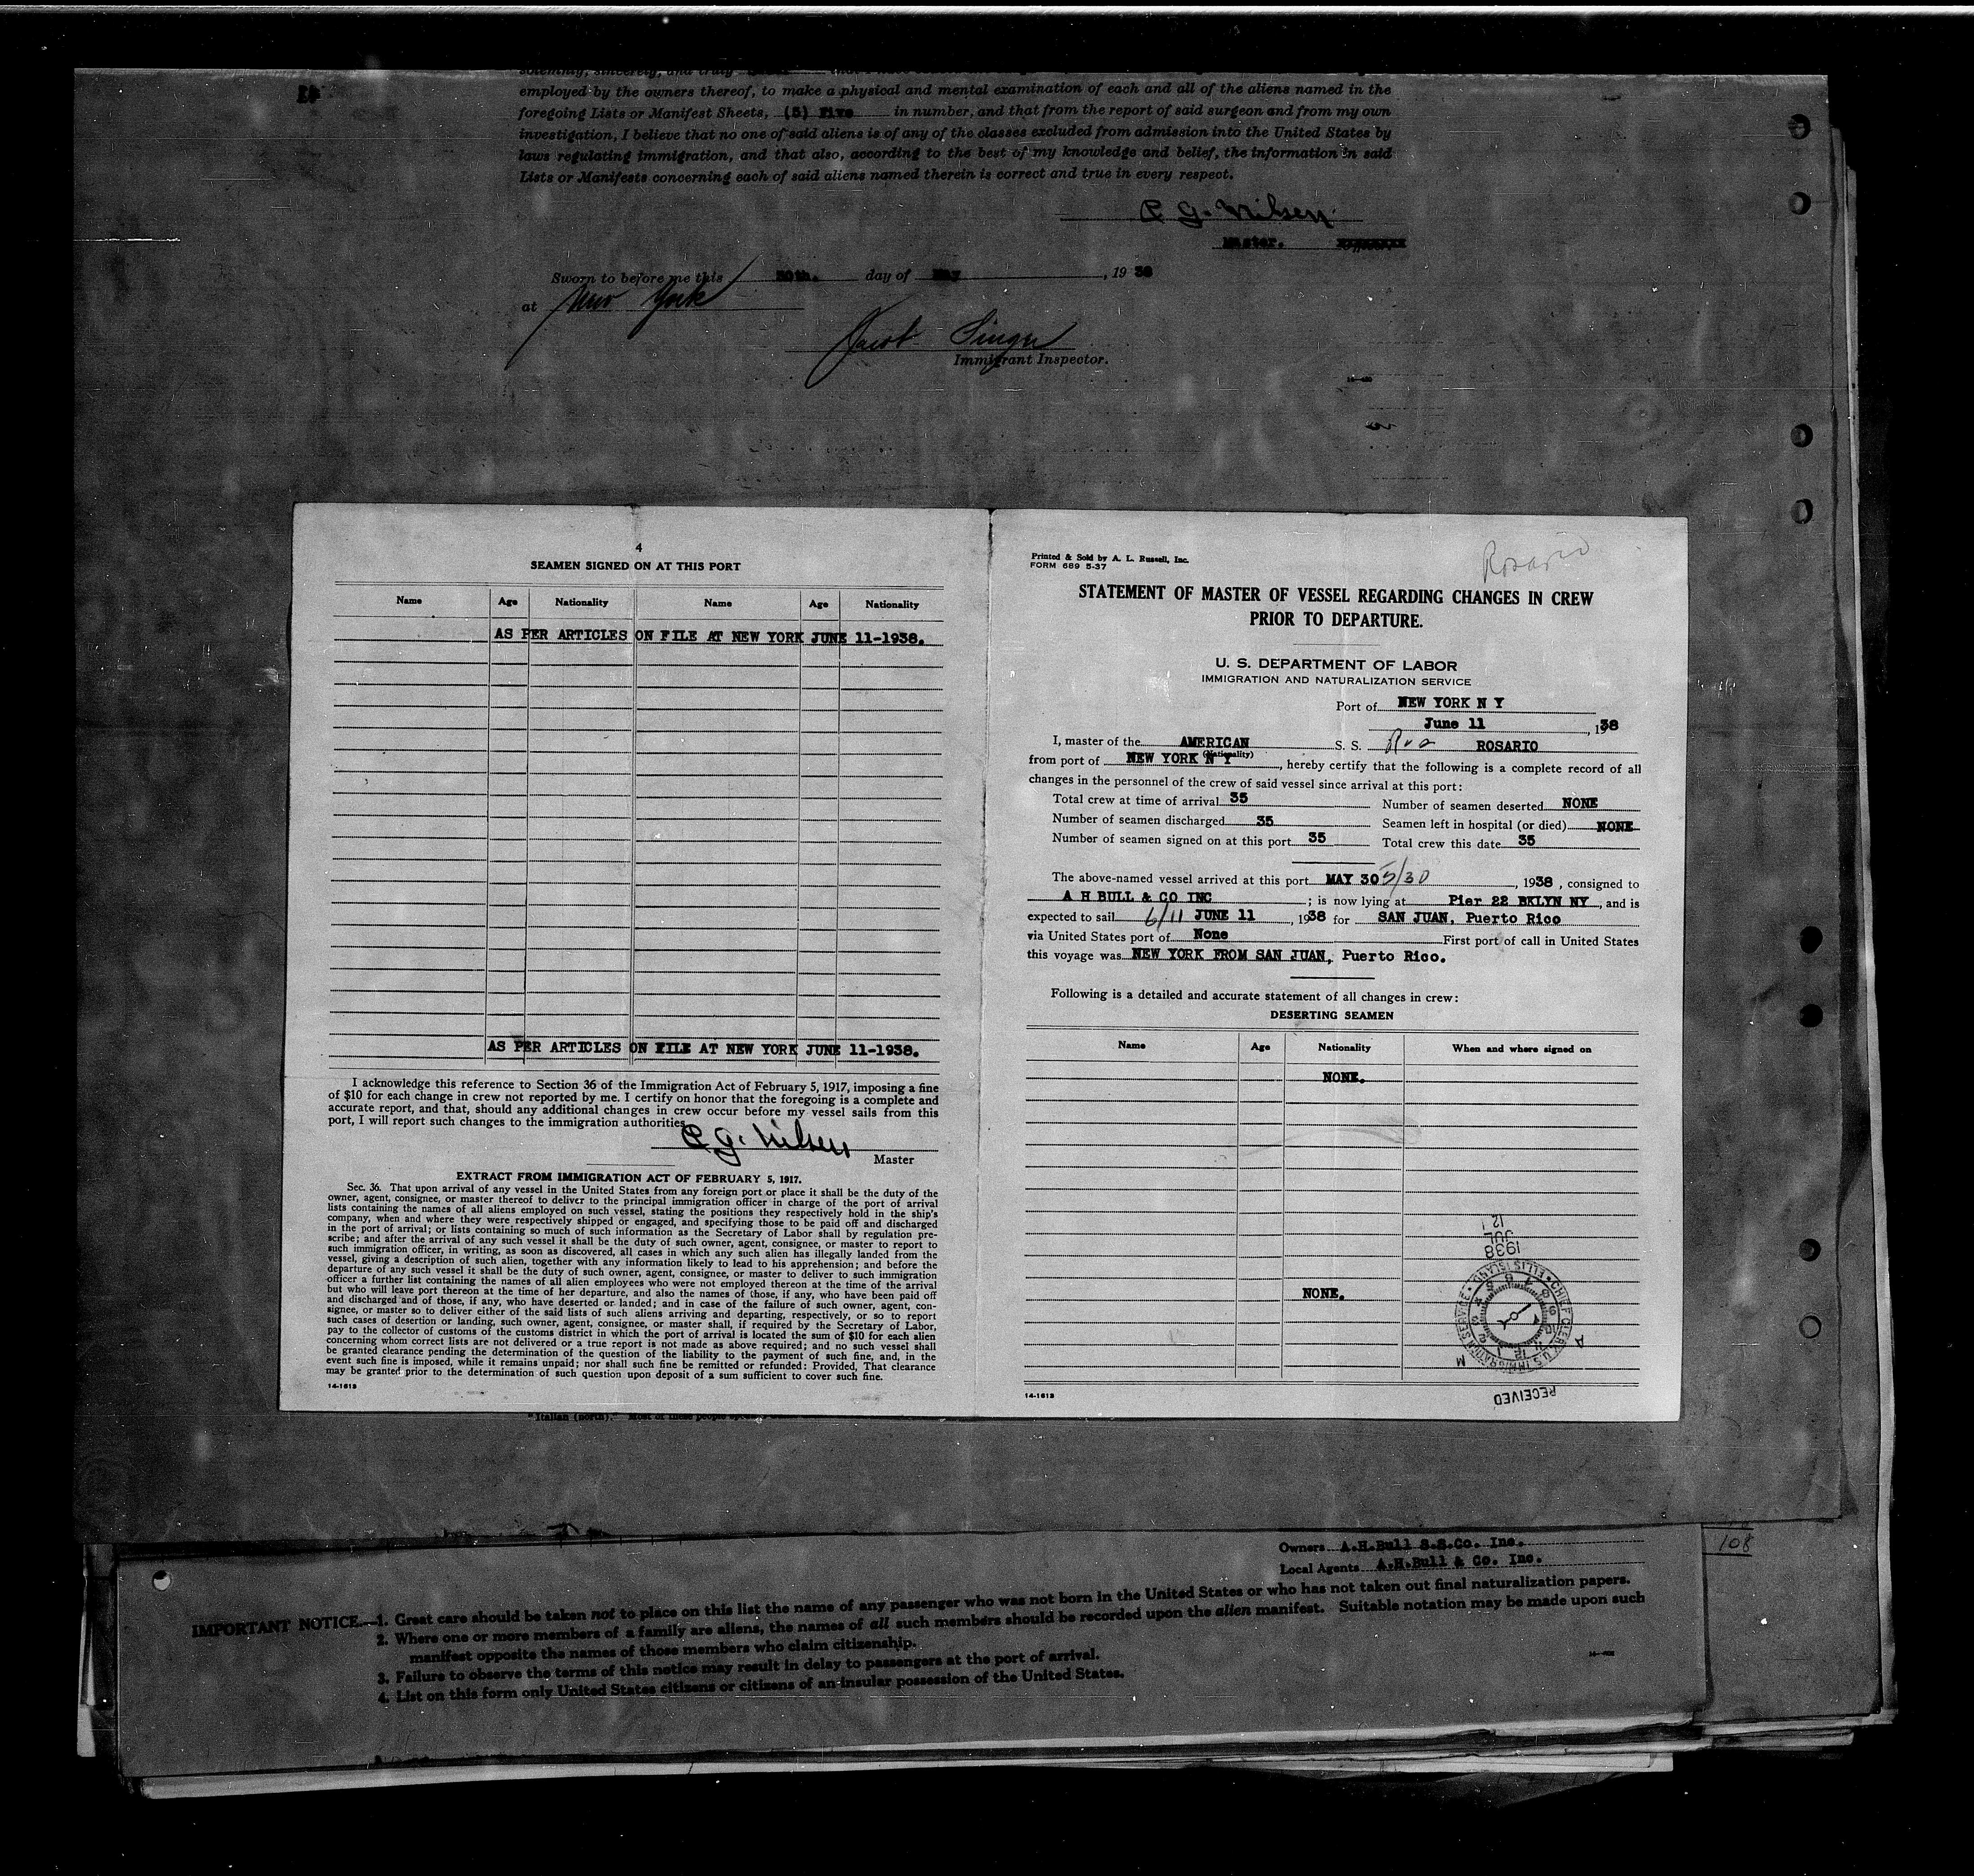 employed by the owners thereof, to make a physical and mental examination of each and all of the aliens named in the
foregoing Lists or Manifest Sheets, (5) Five in number, and that from the report of said surgeon and from my own
investigation, I believe that no one of said aliens is of any of the classes excluded from admission into the United States by
laws regulating immigration, and that also, according to the best of my knowledge and belief, the information in said
Lists or Manifests concerning each of said aliens named therein is correct and true in every respect.
P. G. Nilsen
Master.
Sworn to before me this 30th. day of May, 1938
at New York
Immigrant Inspector.
4
SEAMEN SIGNED ON AT THIS PORT
Name Age Nationality Name Age Nationality
AS PER ARTICLES ON FILE AT NEW YORK JUNE 11-1938.
AS PER ARTICLES ON FILE AT NEW YORK JUNE 11-1938.
I acknowledge this reference to Section 36 of the Immigration Act of February 5, 1917, imposing a fine
of $10 for each change in crew not reported by me. I certify on honor that the foregoing is a complete and
accurate report, and that, should any additional changes in crew occur before my vessel sails from this
port, I will report such changes to the immigration authorities.
P. G. Nilsen
Master
EXTRACT FROM IMMIGRATION ACT OF FEBRUARY 5, 1917.
Sec. 36. That upon arrival of any vessel in the United States from any foreign port or place it shall be the duty of the
owner, agent, consignee, or master thereof to deliver to the principal immigration officer in charge of the port of arrival
lists containing the names of all aliens employed on such vessel, stating the positions they respectively hold in the ship's
company, when and where they were respectively shipped or engaged, and specifying those to be paid off and discharged
in the port of arrival; or lists containing so much of such information as the Secretary of Labor shall by regulation pre-
scribe; and after the arrival of any such vessel it shall be the duty of such owner, agent, consignee, or master to report to
such immigration officer, in writing, as soon as discovered, all cases in which any such alien has illegally landed from the
vessel, giving a description of such alien, together with any information likely to lead to his apprehension; and before the
departure of any such vessel it shall be the duty of such owner, agent, consignee, or master to deliver to such immigration
officer a further list containing the names of all alien employees who were not employed thereon at the time of the arrival
but who will leave port thereon at the time of her departure, and also the names of those, if any, who have been paid off
and discharged and of those, if any, who have deserted or landed; and in case of the failure of such owner, agent, con-
signee, or master so to deliver either of the said lists of such aliens arriving and departing, respectively, or so to report
such cases of desertion or landing, such owner, agent, consignee, or master shall, if required by the Secretary of Labor,
pay to the collector of customs of the customs district in which the port of arrival is located the sum of $10 for each alien
concerning whom correct lists are not delivered or a true report is not made as above required; and no such vessel shall
be granted clearance pending the determination of the question of the liability to the payment of such fine, and, in the
event such fine is imposed, while it remains unpaid; nor shall such fine be remitted or refunded: Provided, That clearance
may be granted prior to the determination of such question upon deposit of a sum sufficient to cover such fine.
14-1613
Printed & Sold by A. L. Russell, Inc.
FORM 689 5-37
Rosario
STATEMENT OF MASTER OF VESSEL REGARDING CHANGES IN CREW
PRIOR TO DEPARTURE.
U. S. DEPARTMENT OF LABOR
IMMIGRATION AND NATURALIZATION SERVICE
Port of NEW YORK N Y
June 11, 1938
I, master of the AMERICAN S. S. ROSARIO
(Nationality)
from port of NEW YORK N Y, hereby certify that the following is a complete record of all
changes in the personnel of the crew of said vessel since arrival at this port:
Total crew at time of arrival 35 Number of seamen deserted NONE
Number of seamen discharged 35 Seamen left in hospital (or died) NONE
Number of seamen signed on at this port 35 Total crew this date 35
The above-named vessel arrived at this port MAY 30 5/30, 1938, consigned to
A H BULL & CO INC; is now lying at Pier 22 BKLYN NY, and is
expected to sail 6/11 JUNE 11, 1938 for SAN JUAN, Puerto Rico
via United States port of None First port of call in United States
this voyage was NEW YORK FROM SAN JUAN, Puerto Rico.
Following is a detailed and accurate statement of all changes in crew:
DESERTING SEAMEN
Name Age Nationality When and where signed on
NONE.
NONE.
12
JUL
1938
CHIEF CLERK U.S. IMMIGRATION SERVICE ELLIS ISLAND
A M
RECEIVED
14-1613
"Italian (north)." Most of these people
Owners A.H.Bull S.S.Co. Inc.
Local Agents A.H.Bull & Co. Inc.
108
IMPORTANT NOTICE.—1. Great care should be taken not to place on this list the name of any passenger who was not born in the United States or who has not taken out final naturalization papers.
2. Where one or more members of a family are aliens, the names of all such members should be recorded upon the alien manifest. Suitable notation may be made upon such
manifest opposite the names of those members who claim citizenship.
3. Failure to observe the terms of this notice may result in delay to passengers at the port of arrival.
4. List on this form only United States citizens or citizens of an insular possession of the United States.